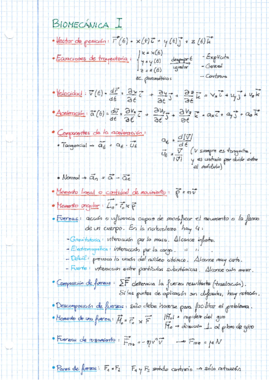 BIOMECÁNICA I
• Vector de posición: r⃗(t) = x(t) i⃗ + y(t) j⃗ + z(t) k⃗
• Ecuaciones de trayectoria: { x = x(t)
y = y(t)
z = z(t)
ec. paramétricas
despejar
igualar
- Explícita
- General
- Continua
• Velocidad: v⃗(t) = dr⃗/dt = ∂x/∂t i⃗ + ∂y/∂t j⃗ + ∂z/∂t k⃗ = vx i⃗ + vy j⃗ + vz k⃗
• Aceleración: a⃗(t) = dv⃗/dt = ∂vx/∂t i⃗ + ∂vy/∂t j⃗ + ∂vz/∂t k⃗ = ax i⃗ + ay j⃗ + az k⃗
• Componentes de la aceleración:
• Tangencial → a⃗t = at · u⃗t
at = d|v⃗|/dt
u⃗t = v⃗/|v⃗| (v siempre es tangente,
y es unitario por dividir entre
el módulo)
• Normal → a⃗n = a⃗ - a⃗t
• Momento lineal o cantidad de movimiento: p⃗ = m v⃗
• Momento angular: L⃗o = r⃗ x p⃗
• Fuerzas: acción o influencia capaz de modificar el movimiento o la forma
de un cuerpo. En la naturaleza hay 4:
- Gravitatoria: interacción por la masa. Alcance infinito.
- Electromagnética: interacción por la carga.
- Débil: provoca la unión del núcleo atómico. Alcance muy corto.
- Fuerte: interacción entre partículas subatómicas. Alcance aún menor.
• Composición de fuerzas: ΣF⃗ determina la fuerza resultante (traslación).
Si los puntos de aplicación son diferentes, hay rotación.
• Descomposición de fuerzas: sólo debe hacerse para facilitar el problema.
• Momento de una fuerza: M⃗o = r⃗o x F⃗
|Mo| → rapidez del giro
Mo → dirección ⊥ al plano de giro
• Fuerzas de rozamiento:
→ F = μN
• Pares de fuerzas: F1 = F2 F1 y F2 sentido contrario → sólo rotación